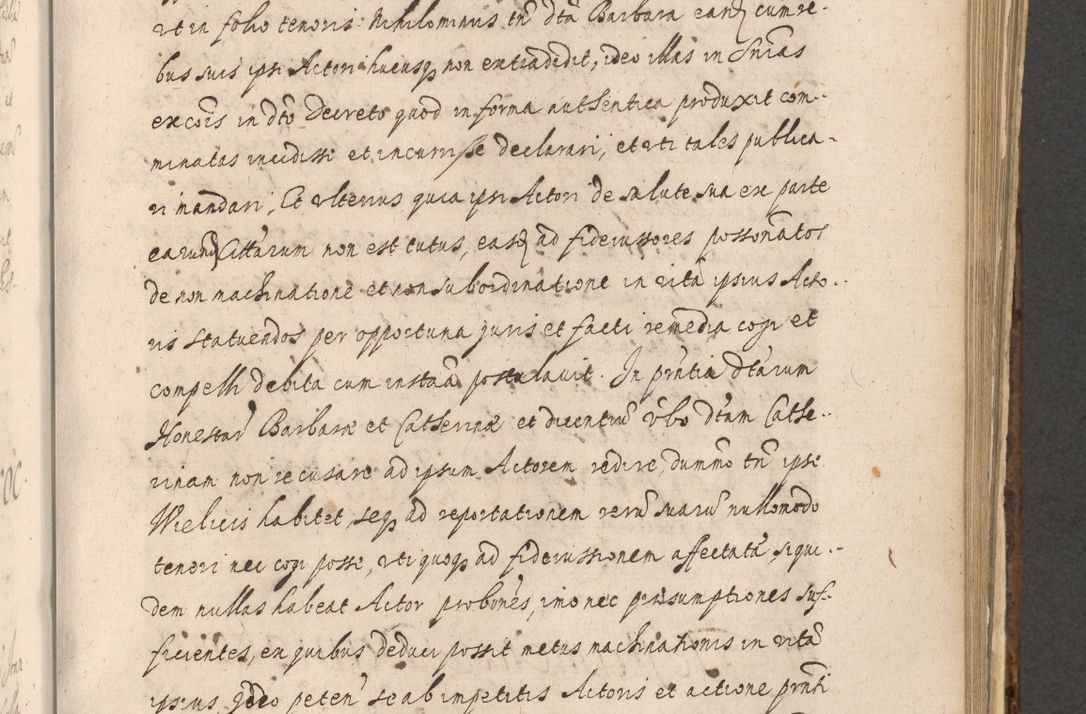 ut in folio tenoris: Nihilominus tñ dtã Barbara eanq cum re-
bus suis ipsi Actori hucusq non extradidit, ideo illas in Sñias
excõis in dto Decreto quod in forma authentica produxit com-
minatas incidisse et incurrisse declarari, et uti tales publica-
ri mandari, Et ulterius quia ipsi Actori de salute sua ex parte
earund Cittarum non est tutus, easq ad fideiussores possonatos
de non machinatione et non subordinatione in vitã ipsius Acto-
ris statuendos per opportuna juris et facti remedia cogi et
compelli debita cum instaã postulavit. In pñtia dtarum
Honestar Barbaræ et Catherinæ et dicentiũ vbo dtam Cathe-
rinam non recusare ad ipsum Actorem redire, dummo tñ ipse
Wieliciis habitet, seq ad reportationem rerũ suarũ nullomodo
teneri nec cogi posse, uti quoq ad fideiussionem affectatã, siqui-
dem nullas habeat Actor probones, imo nec præsumptiones suf-
ficientes, ex quibus deduci possit metus machinationis in vitã
ipsius Ideo peten se ab impetitis Actoris et actione pñti